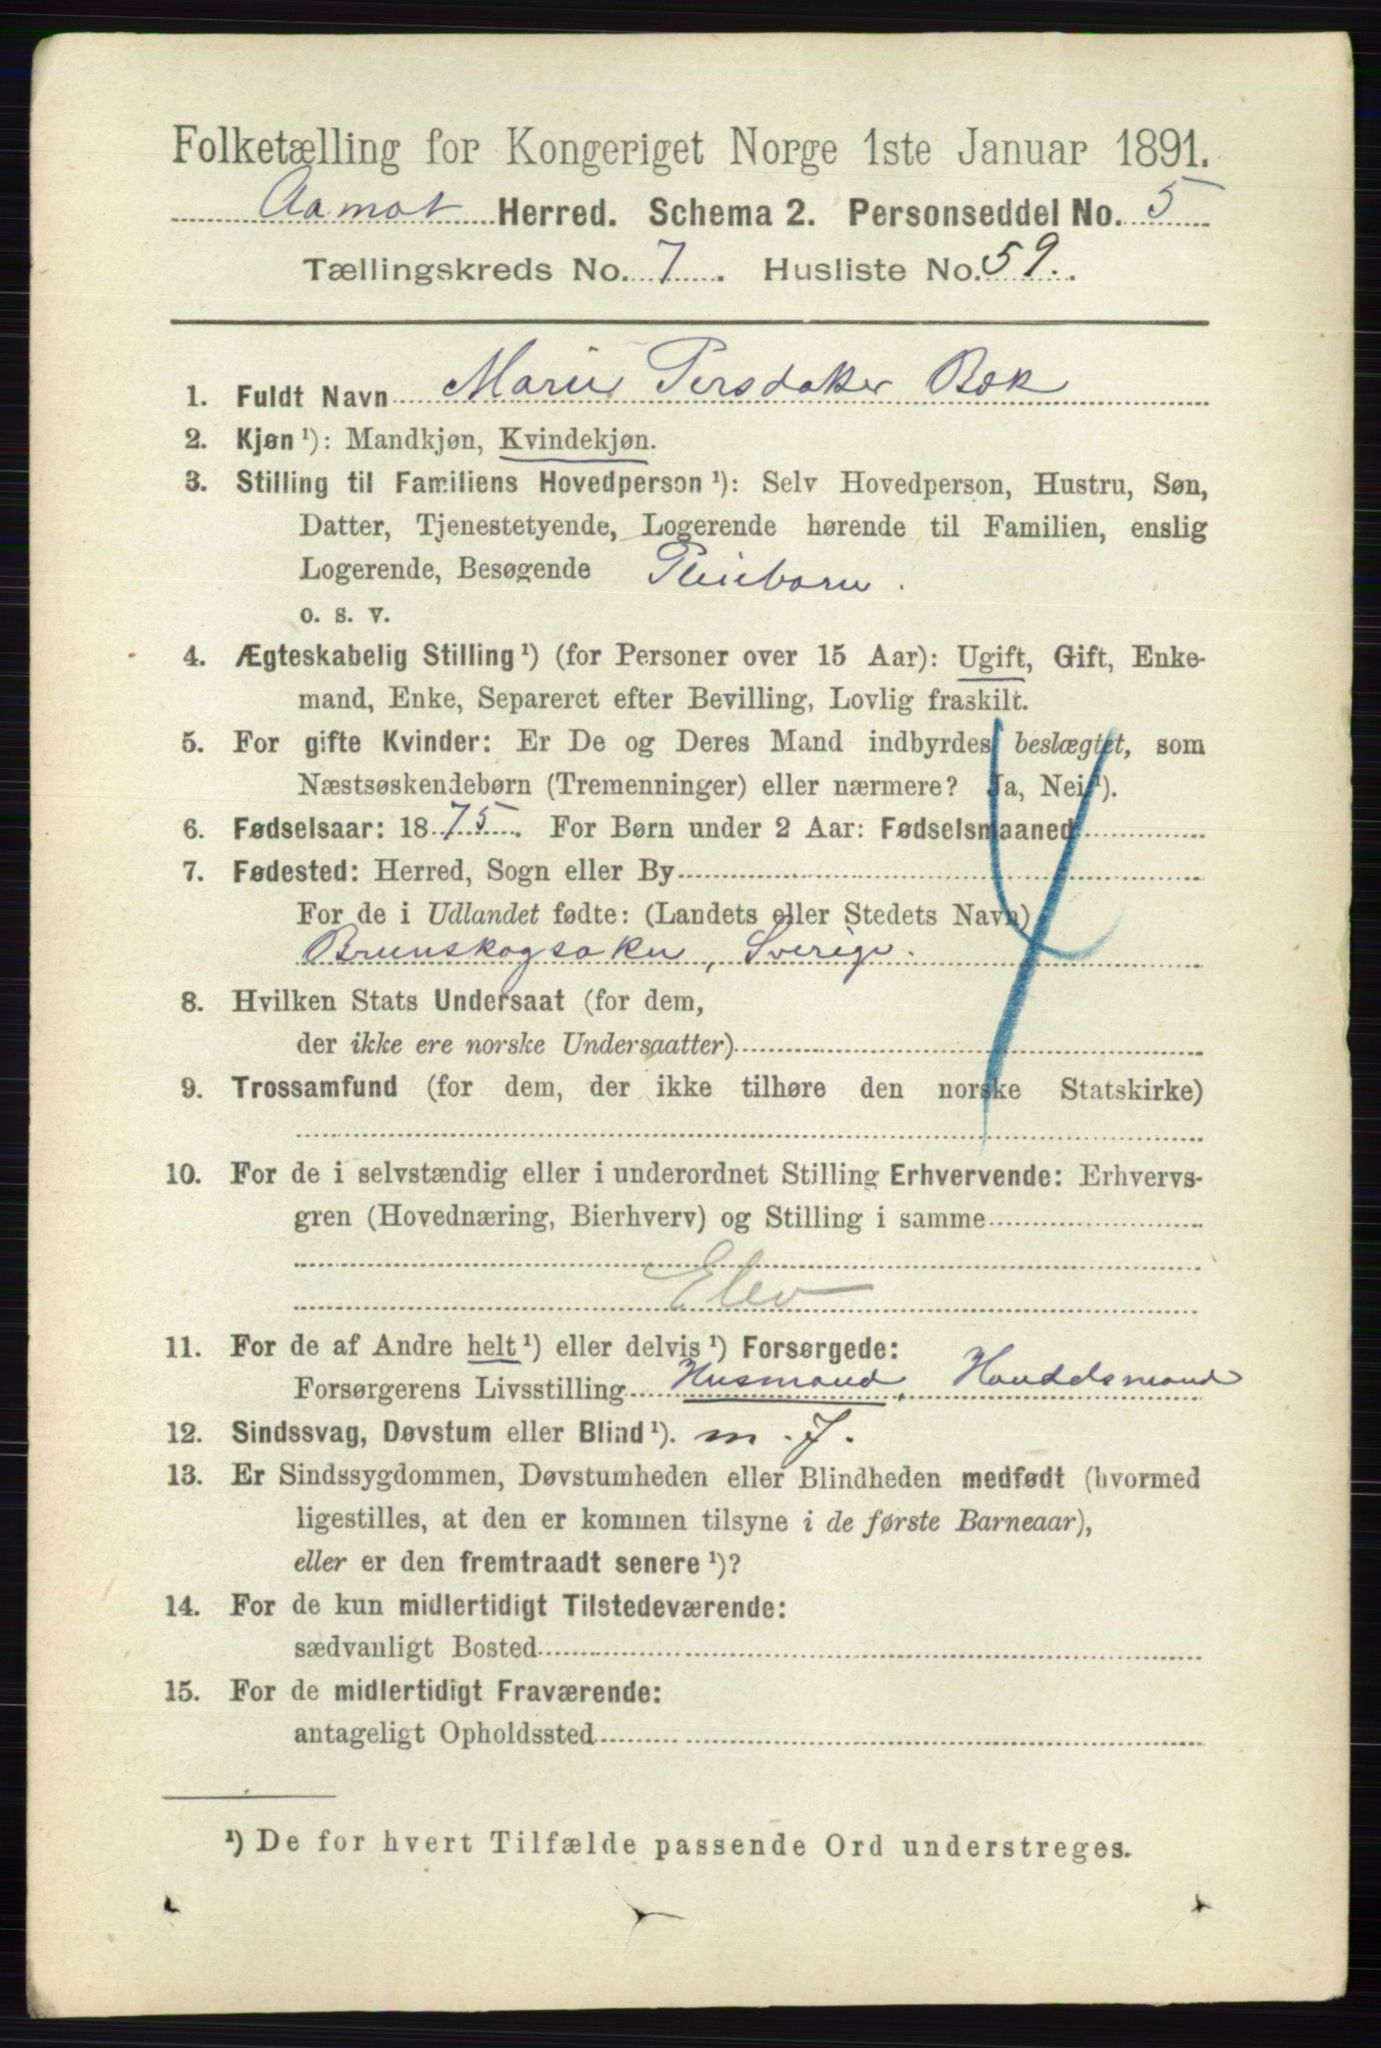 Folketælling for Kongeriget Norge 1ste Januar 1891.
Aamot Herred. Schema 2. Personseddel No. 5
Tællingskreds No. 7. Husliste No. 59.
1. Fuldt Navn Marie Persdatter Bæk
2. Kjøn ¹): Mandkjøn, Kvindekjøn.
3. Stilling til Familiens Hovedperson ¹): Selv Hovedperson, Hustru, Søn,
Datter, Tjenestetyende, Logerende hørende til Familien, enslig
Logerende, Besøgende Pleiebarn.
o. s. v.
4. Ægteskabelig Stilling ¹) (for Personer over 15 Aar): Ugift, Gift, Enke-
mand, Enke, Separeret efter Bevilling, Lovlig fraskilt.
5. For gifte Kvinder: Er De og Deres Mand indbyrdes beslægtet, som
Næstsøskendebørn (Tremenninger) eller nærmere? Ja, Nei ¹).
6. Fødselsaar: 1875. For Børn under 2 Aar: Fødselsmaaned
7. Fødested: Herred, Sogn eller By
For de i Udlandet fødte: (Landets eller Stedets Navn)
Brunskogsoken, Sverige.
8. Hvilken Stats Undersaat (for dem,
der ikke ere norske Undersaatter)
9. Trossamfund (for dem, der ikke tilhøre den norske Statskirke)
10. For de i selvstændig eller i underordnet Stilling Erhvervende: Erhvervs-
gren (Hovednæring, Bierhverv) og Stilling i samme
Elev
11. For de af Andre helt ¹) eller delvis ¹) Forsørgede:
Forsørgerens Livsstilling Husmand, Handelsmand
12. Sindssvag, Døvstum eller Blind ¹). m. J.
13. Er Sindssygdommen, Døvstumheden eller Blindheden medfødt (hvormed
ligestilles, at den er kommen tilsyne i de første Barneaar),
eller er den fremtraadt senere ¹)?
14. For de kun midlertidigt Tilstedeværende:
sædvanligt Bosted
15. For de midlertidigt Fraværende:
antageligt Opholdssted
¹) De for hvert Tilfælde passende Ord understreges.